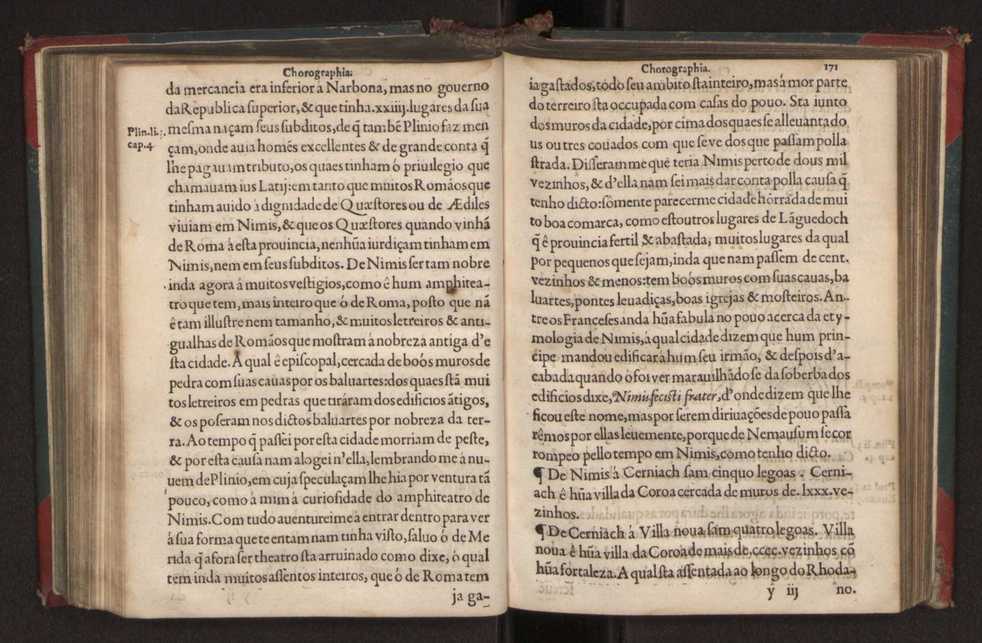 Chorographia.
da mercancia era inferior à Narbona, mas no governo
da Republica superior, & que tinha .xxiiij. lugares da sua
Plin. li. 3. cap. 4
mesma naçam seus subditos, de q̃ tambẽ Plinio faz men
çam, onde auia homẽs excellentes & de grande conta q̃
lhe pagauam tributo, os quaes tinham ó priuilegio que
chamauam ius Latij: em tanto que muitos Romãos que
tinham auido à dignidade de Quæstores ou de Ædiles
viuiam em Nimis, & que os Quæstores quando vinhã
de Roma á esta prouincia, nenhũa iurdiçam tinham em
Nimis, nem em seus subditos. De Nimis ser tam nobre
inda agora á muitos vestigios, como é hum amphitea-
tro que tem, mais inteiro que ó de Roma, posto que nã
é tam illustre nem tamanho, & muitos letreiros & anti-
gualhas de Romãos que mostram á nobreza antiga d'e
sta cidade. A qual é episcopal, cercada de boós muros de
pedra com suas cauas por os baluartes: dos quaes stã mui
tos letreiros em pedras que tiráram dos edificios ãtigos,
& os poseram nos dictos baluartes por nobreza da ter-
ra. Ao tempo q̃ passei por esta cidade morriam de peste,
& por esta causa nam alogei n'ella, lembrando me á nu-
uem de Plinio, em cuja speculaçam lhe hia por ventura tã
pouco, como à mim á curiosidade do amphiteatro de
Nimis. Com tudo auentureime à entrar dentro para ver
á sua forma que te entam nam tinha visto, saluo ó de Me
rida q̃ afora ser theatro sta arruinado como dixe, ó qual
tem inda muitos assentos inteiros, que ó de Roma tem
ja ga-
Chorographia.
171
ia gastados, todo seu ambito sta inteiro, mas à mor parte
do terreiro sta occupada com casas do pouo. Sta iunto
dos muros da cidade, por cima dos quaes se alleuanta do
us ou tres couados com que se ve dos que passam polla
strada. Disseram me que teria Nimis perto de dous mil
vezinhos, & d'ella nam sei mais dar conta polla causa q̃
tenho dicto: somente parecerme cidade hõrrada de mui
to boa comarca, como estoutros lugares de Lãguedoch
q̃ é prouincia fertil & abastada, muitos lugares da qual
por pequenos que sejam, inda que nam passem de cent.
vezinhos & menos: tem boós muros com suas cauas, ba
luartes, pontes leuadiças, boas igrejas & mosteiros. An-
tre os Franceses anda hũa fabula no pouo acerca da ety-
mologia de Nimis, á qual cidade dizem que hum prin-
cipe mandou edificar à hum seu irmão, & despois d'a-
cabada quando ó foi ver marauilhãdo se da soberba dos
edificios dixe, Nimis fecisti frater, d'onde dizem que lhe
ficou este nome, mas por serem diriuações de pouo passa
rẽmos por ellas leuemente, porque de Nemausum se cor
rompeo pello tempo em Nimis, como tenho dicto.
¶ De Nimis à Cerniach sam cinquo legoas. Cerni-
ach é hũa villa da Coroa cercada de muros de .lxxx. ve-
zinhos.
¶ De Cerniach à Villa noua sam quatro legoas. Villa
noua é hũa villa da Coroa de mais de .cccc. vezinhos cõ
hũa fortaleza. A qual sta assentada ao longo do Rhoda-
y iij no.